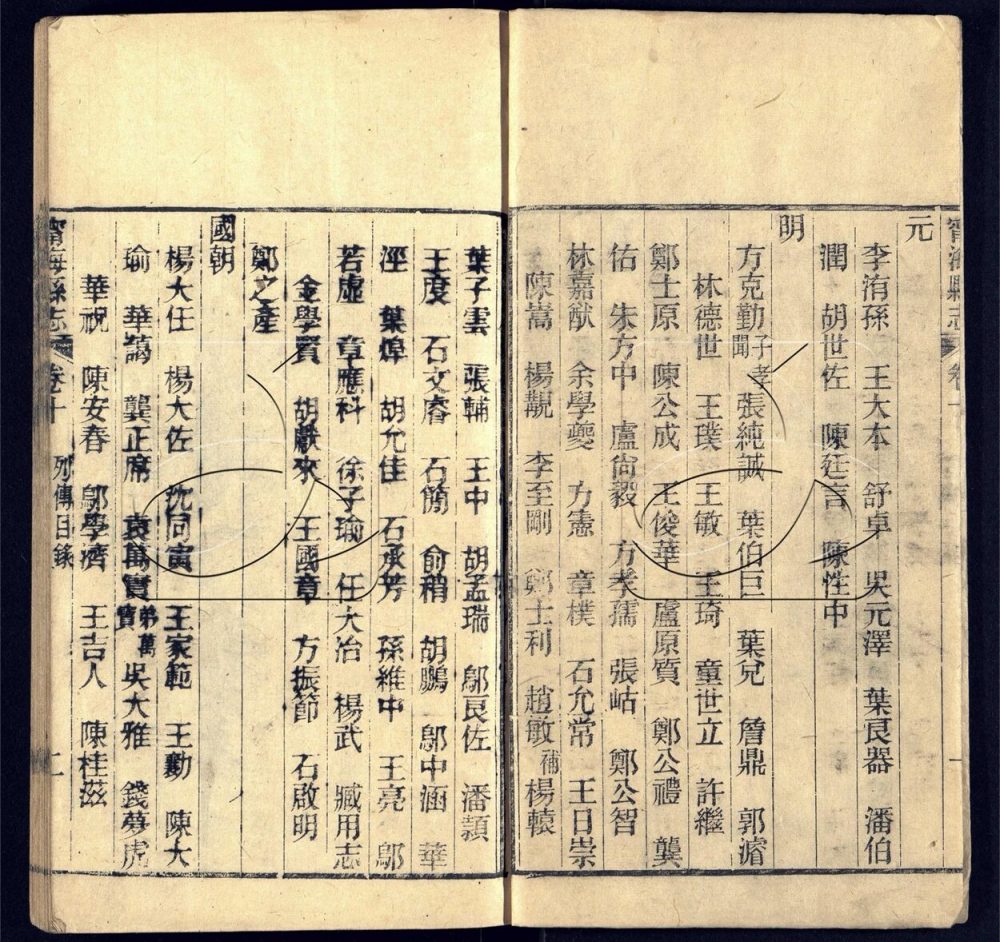 寧海縣志 卷十
元
李洧孫 王大本 舒卓 吳元澤 葉良器 潘伯
潤 胡世佐 陳廷言 陳性中
明
方克勤 子孝聞 張純誠 葉伯巨 葉兌 詹鼎 郭濬
林德世 王璞 王敏 王琦 童世立 許繼
鄭士原 陳公成 王俊華 盧原質 鄭公禮 龔
佑 朱方中 盧尙毅 方孝孺 張岵 鄭公智
林嘉猷 余學夔 方憲 章樸 石允常 王日崇
陳嵩 楊靚 李至剛 鄭士利 趙敏 補 楊轅
葉子雲 張輔 王中 胡孟瑞 鄔良佐 潘穎
王度 石文睿 石簡 俞稍 胡鵬 鄔中涵 華
涇 葉焯 胡允佳 石承芳 孫維中 王亮 鄔
若虛 章應科 徐子瑜 任大冶 楊武 臧用志
金學賢 胡獻來 王國章 方振節 石啟明
鄭之產
國朝
楊大任 楊大佐 沈同寅 王家範 王勳 陳大
瑜 華藹 龔正席 袁萬實 弟萬寶 吳大雅 錢夢虎
華祝 陳安春 鄔學濟 王吉人 陳桂滋
寧海縣志 卷十 列傳目錄 二